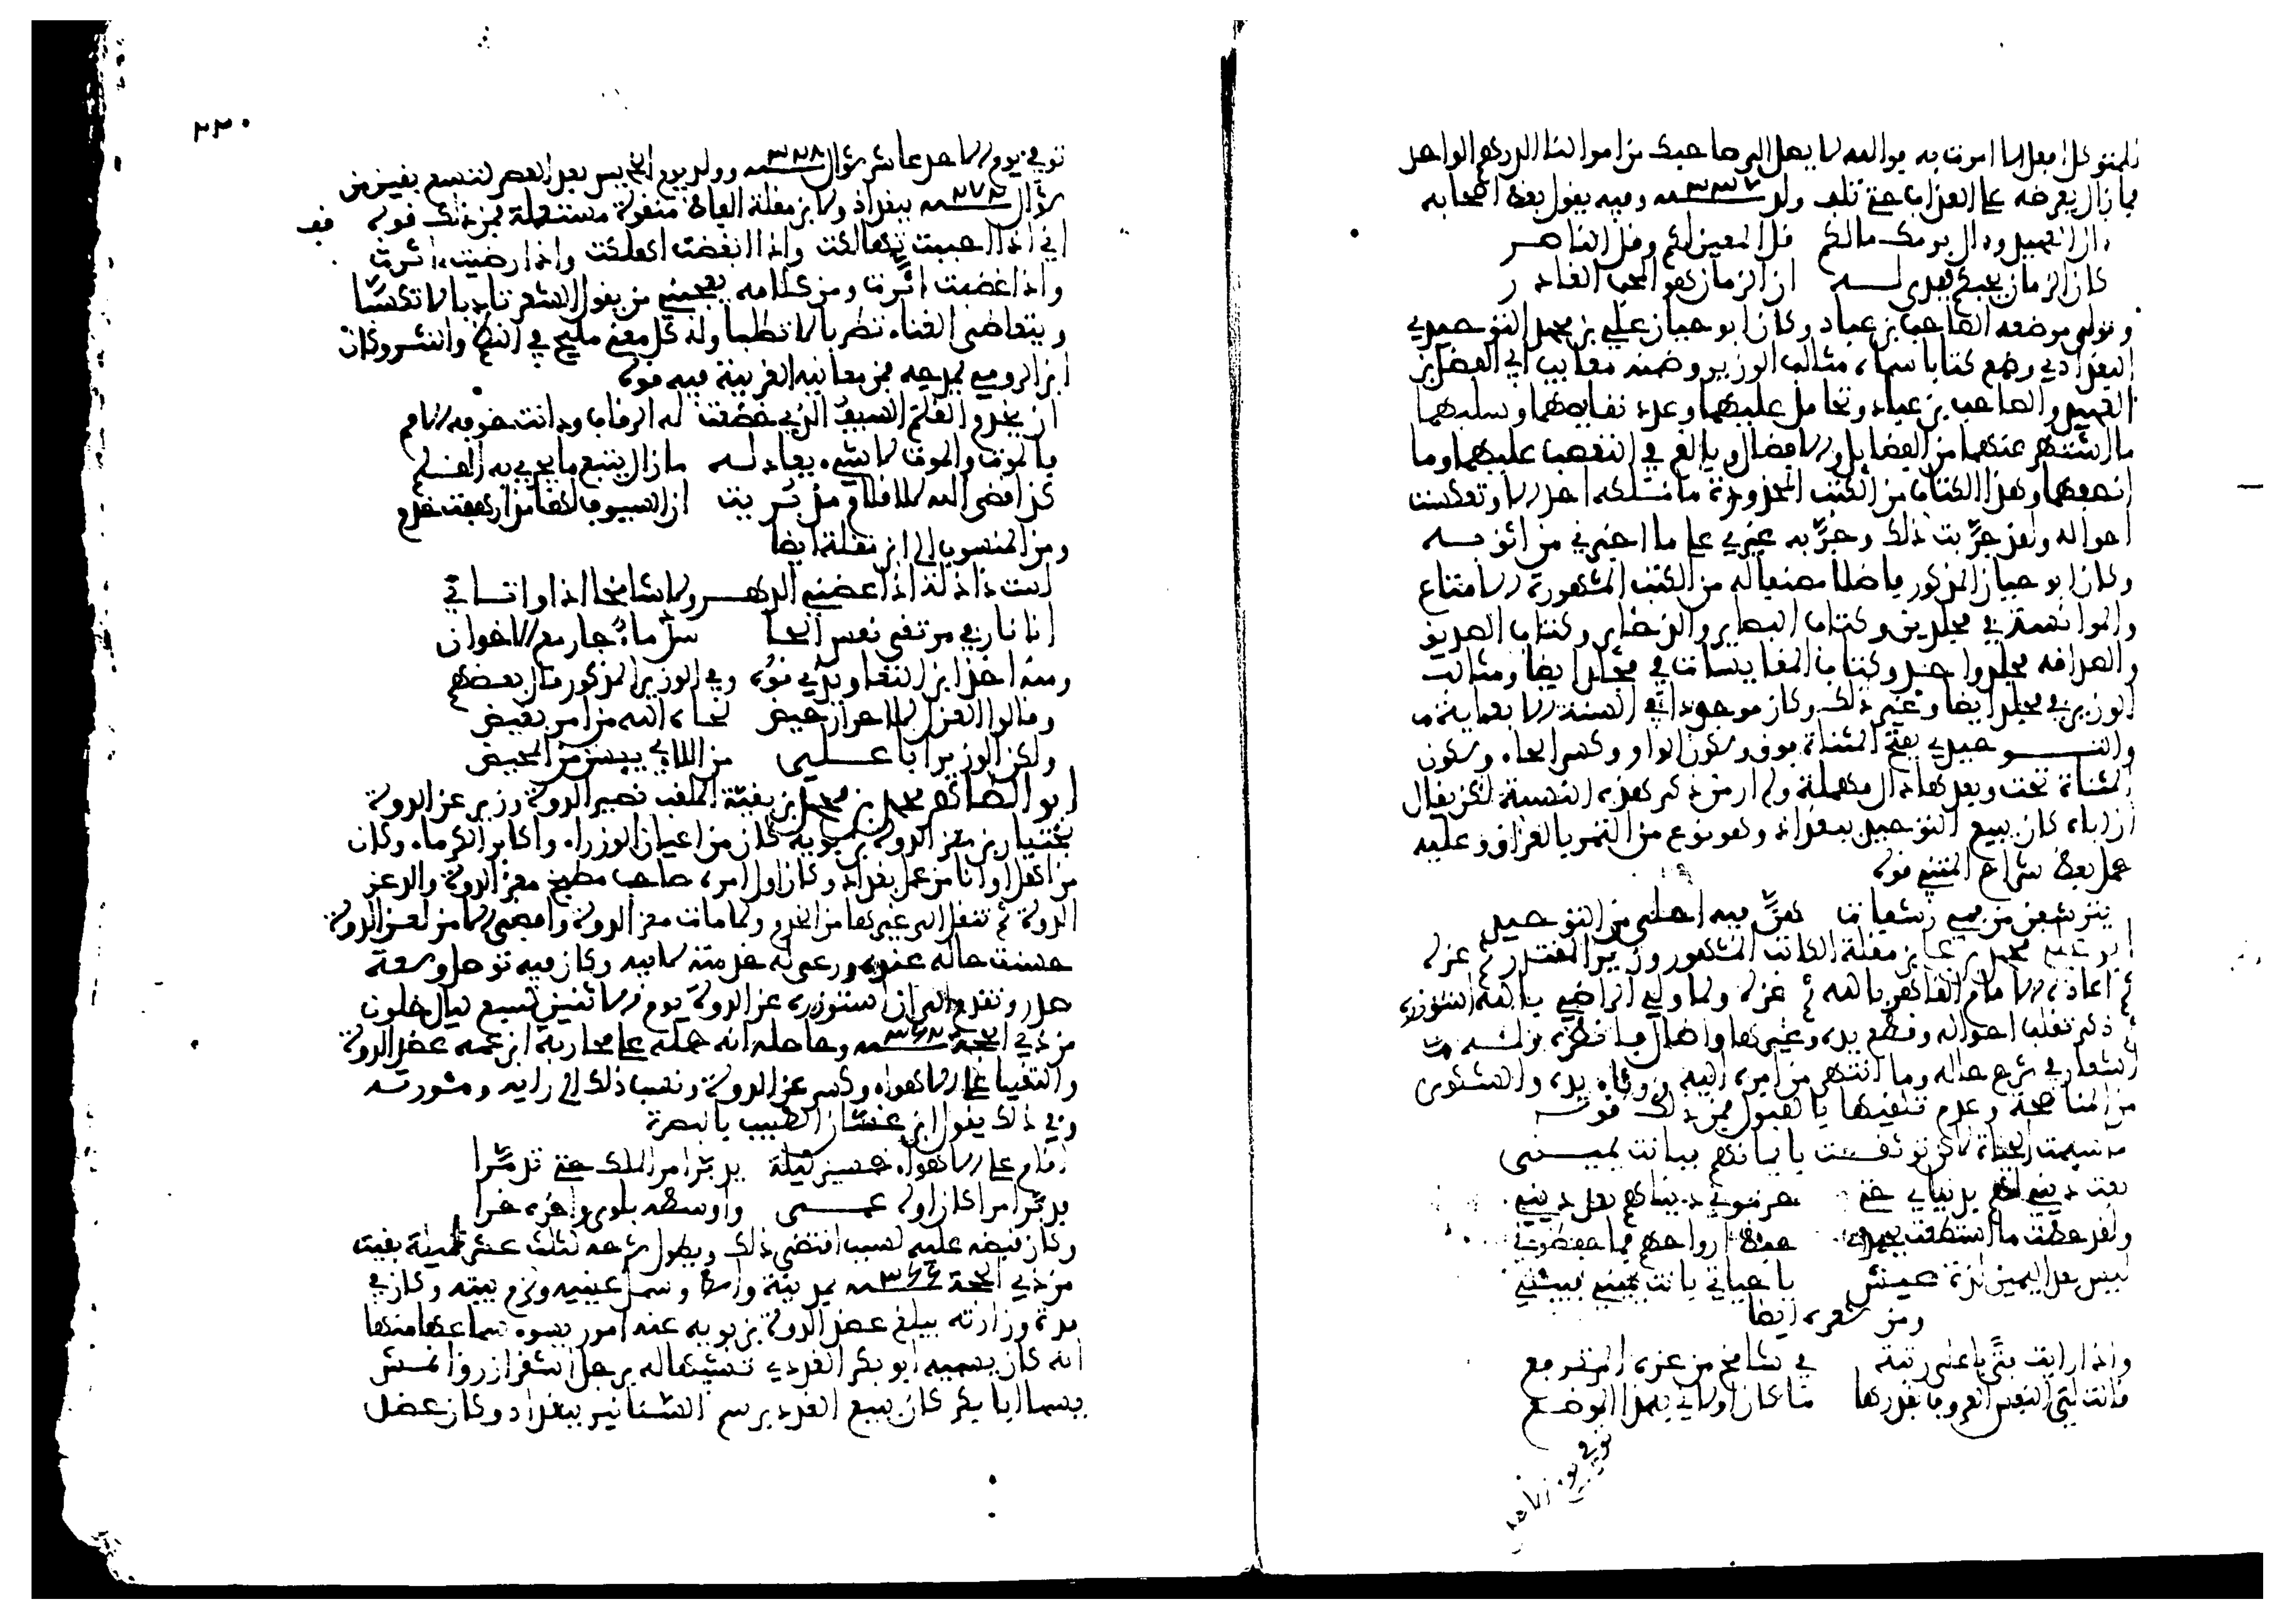 للمتوكل افعل ما امرت به فوالله لا يصل الى صاحبك من اموالنا الدرهم الواحد
فما زال يعرضه على العذاب حتى تلف ولد سنة ٣٣٧ وفيه يقول بعض اصحابه
ءال العميد وءال برمك مالكم قل المعين لكم وقل الناصر
كان الزمان يحبكم فبدى له ان الزمان هو المحب الغادر
وتولى موضعه الصاحب بن عباد وكان ابو حيان علي بن محمد التوحيدي
البغدادي وضع كتابا سماه مثالب الوزيرين ضمنه معايب ابي الفضل بن
العميد والصاحب بن عباد وتحامل عليهما وعدد نقايصهما وسلبهما
ما اشتهر عنهما من الفضايل والافضال وبالغ في التعصب عليهما وما
انصفهما وهذا الكتاب من الكتب المحذورة ما ملكه احد الا وتعكست
احواله ولقد جربت ذلك وجربه غيري على ما اخبرني من اثق به
وكان ابو حيان المذكور فاضلا مصنفا له من الكتب المشهورة الامتاع
والموانسة في مجلدين وكتاب البصاير والذخاير وكتاب الصديق
والصداقه مجلد واحد وكتاب المقابسات في مجلد ايضا ومثالب
الوزيرين في مجلد ايضا وغير ذلك وكان موجودا في السنة الاربعماية
والتوحيدي بفتح المثناة فوق وسكون الواو وكسر الحاء وسكون
المثناة تحت وبعدها دال مهملة ولم ار من ذكر هذه النسبة لكن يقال
ان اباه كان يبيع التوحيد ببغداد وهو نوع من التمر بالعراق وعليه
حمل بعض شراح المتنبي قوله
يترشفن من فمي رشفات هن فيه احلى من التوحيد
ابو علي محمد بن علي بن مقلة الكاتب المشهور وزير المقتدر ثم عزله
ثم اعاده الامام القاهر بالله ثم عزله ولما ولي الراضي بالله استوزره
ثم ذكر تقلب احواله وقطع يده وغيرها واطال فانظره
اشعار في شرح حاله وما انتهى من امره اليه ورثاء يده والشكوى
من المناصحة وعدم تلقيها بالقبول فمن ذلك قوله
ما سيمت الحياة لاكن توثقت بايمانهم فبانت يميني
بعت ديني لهم بدنياي حتى حرموني دنياهم بعد ديني
ولقد حطت ما استطعت بجهدي حفظ ارواحهم فما حفظوني
ليس بعد اليمين لذة عيش يا حياتي بانت يميني فبيني
ومن شعره ايضا
واذا رايت فتى باعلى رتبة في شامخ من عزه المترفع
قالت لي النفس العروف بقدرها ما كان اولاني بهذا الموضع
توفي يوم الاحد
٢٢٠
توفي يوم الاحد عاشر شوال سنة ٣٢٨ وولد يوم الخميس بعد العصر لتسع بقين من
شوال سنة ٢٧٢ ببغداد ولابن مقلة الفاظ منقولة مستعملة فمن ذلك قوله
اني اذا احببت تهالكت واذا ابغضت اهلكت واذا رضيت ءاثرت
واذا غضبت اثرت ومن كلامه يعجبني من يقول الشعر تادبا لا تكسبا
ويتعاطى الغناء تطربا لا تطلبا وله كل معنى مليح في النظم والنثر وكان
ابن الرومي يمدحه فمن معانيه الغريبة فيه قوله
ان يخدم القلم السيف الذي خضعت له الرقاب ودانت خوفه الامم
فالموت والموت لا شيء يعادله ما زال يتبع ما يجري به القلم
كذا قضى الله للاقلام مذ بريت ان السيوف لها مذ ارهفت خدم
ومن المنسوب الى ابن مقلة ايضا
لست ذا ذلة اذا عضني الدهر ولا شامخا اذا واتاني
انا نار في مرتقى نفس الحاسد ماء جار مع الاخوان
ومنه اخذ ابن التعاويذي قوله وفي الوزير المذكور قال بعضهم
وقالوا العزل للاحرار حيض لحاه الله من امر بغيض
ولكن الوزير ابا علي من اللائي يئسن من المحيض
ابو الطاهر محمد بن محمد بن بقية الملقب نصير الدولة وزير عز الدولة
بختيار بن معز الدولة بن بويه كان من اعيان الوزراء واكابر الكرماء وكان
من اهل اوانا من عمل بغداد وكان اول امره صاحب مطبخ معز الدولة والد عز
الدولة ثم تنقل الى غيرها من الخدم ولما مات معز الدولة وافضى الامر لعز الدولة
حسنت حاله عنده ورعى له خدمته لابيه وكان فيه توصل وسعة
صدر وتقدم الى ان استوزره عز الدولة يوم الاثنين لسبع ليال خلون
من ذي الحجة سنة ٣٦٢ وحاصله انه حمله على محاربة ابن عمه عضد الدولة
والتقيا على الاهواء وكسر عز الدولة ونسب ذلك الى رايه ومشورته
وفي ذلك يقول ابن عنسان الطبيب بالبصرة
اقام على الاهواء خمسين ليلة يدبر امر الملك حتى تدمرا
يدبر امرا كان اوله عمى واوسطه بلوى واخره خرا
وكان قبضه عليه لسبب اقتضى ذلك ويطول شرحه لثلث عشر ليلة بقيت
من ذي الحجة سنة ٣٦٦ بمدينة واسط وسمل عينيه ولزم بيته وكان في
مدة وزارته يبلغ عضد الدولة بن بويه عنه امور يسوءه سماعها منها
انه كان يسميه ابو بكر الغددي تشبيها له برجل اشقر ازرق انمش
يسما ابا بكر كان يبيع الغدد برسم السنانير ببغداد وكان عضد